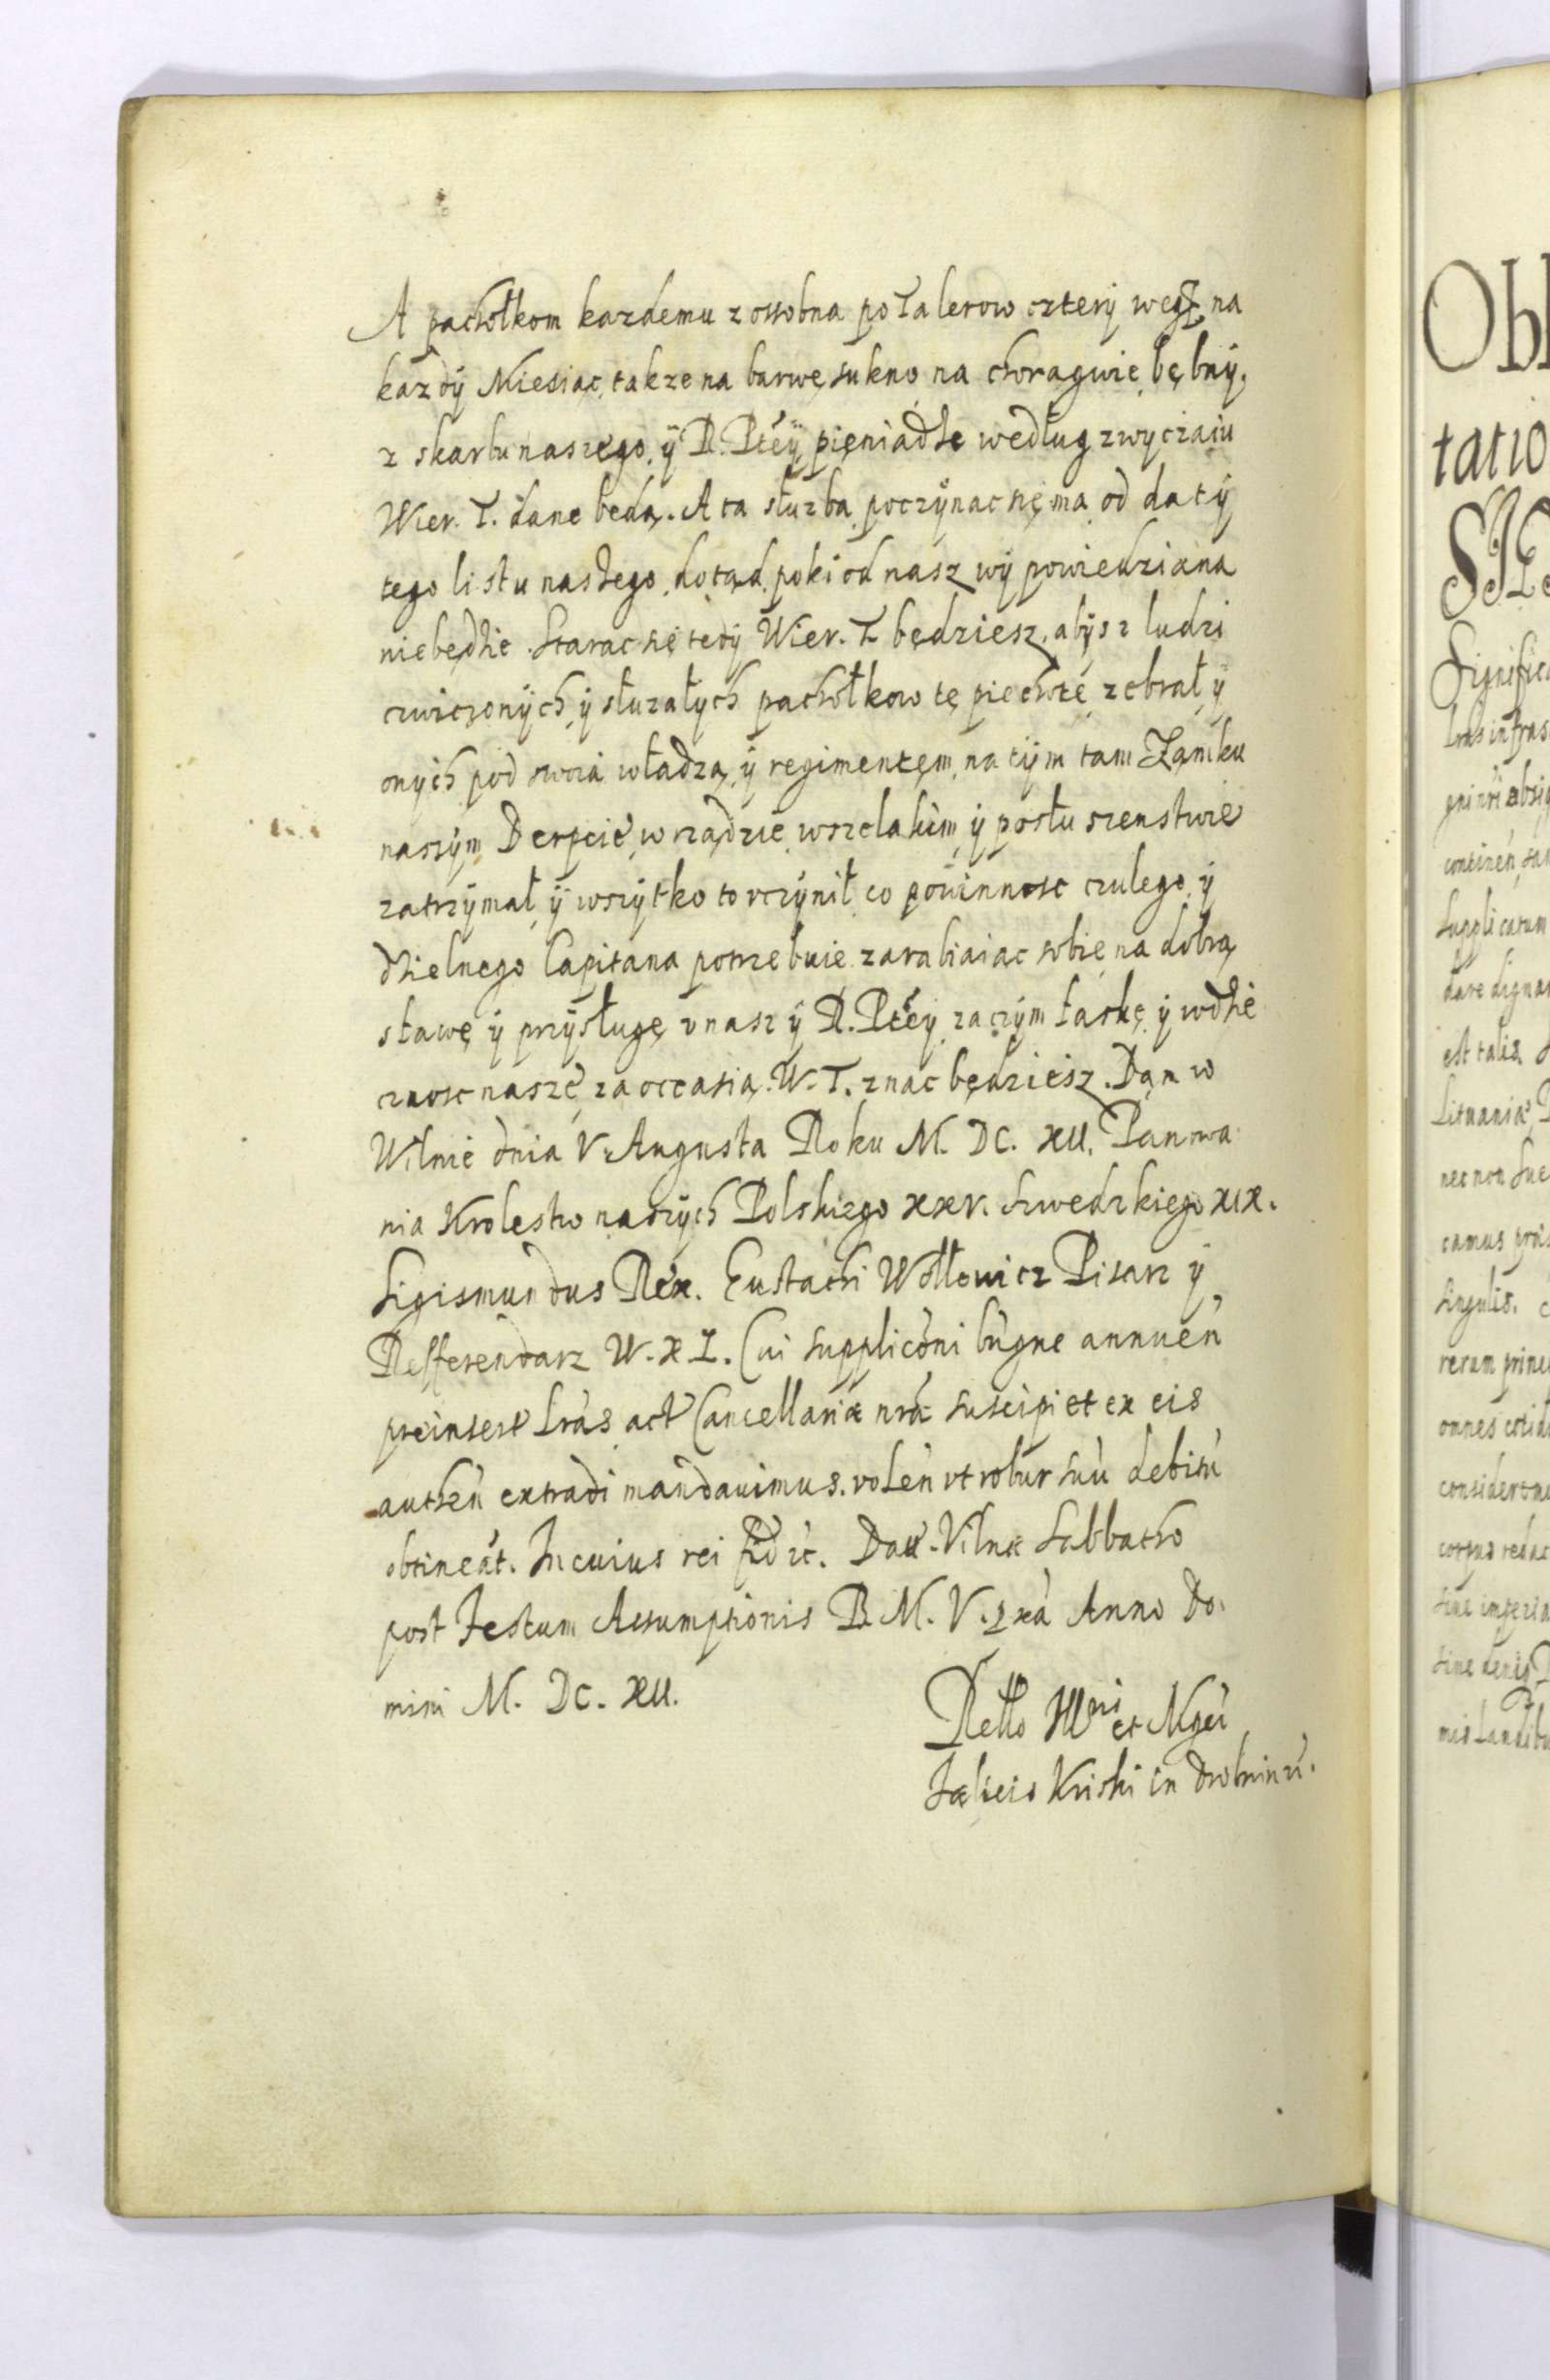 A pachołkom kazdemu z ossobna po Talerow cztery węg: na
kazdÿ Miesiąc, takze na barwę sukno, na choragwie, bębnÿ,
z skarbu naszego, ÿ R. Ptéÿ pieniądze według zwyczaiu
Wier. T. dane bedą. A ta służba, poczÿnac się ma od datÿ
tego listu naszego, dotąd, poki od nasz wÿpowiedziana
niebędzie. Starac się tedÿ Wier. T. będziesz, abÿs z ludzi
cwiczonÿch, ÿ służałych pachołkow tę piechotę zebrał, ÿ
onÿch pod swoią władzą, ÿ regimentęm, na tÿm tam Zamku
naszÿm Derpcie, w rządzie wszelakim, ÿ posłuszenstwie
zatrzÿmał, ÿ wszÿtko to vczÿnił, co powinnosc czulego, ÿ
dzielnego Capitana potrzebuie, zarabiaiac sobie na dobrą
sławę ÿ przÿsługę v nasz ÿ R. Ptéy, zaczÿm łaskę, ÿ wdzie
cznosc naszę, za occasią. W. T. znac będziesz. Dan w
Wilnie dnia V. Augusta Roku M. DC. XII. Panowa
nia Krolestw naszÿch Polskiego XXV. Szwedzkiego XIX.
Sigismundus Rex. Eustachi Wołłowicz Pisarz ÿ
Refferendarz W. X. L. Cui supplicõni bñgne annuen̄
preinsert lrãs act Cancellariæ nrã suscipi et ex eis
authen̄ extradi mandauimus. volen̄ vt robur suũ debitũ
obtineãt. In cuius rei fid etc. Dat. Vilnæ Sabbatho
post Festum Assumptionis B. M. V. Anno Do-
mini M. DC. XII.
Retlo Illri et Mgci
Felicis Kriski in Drobnin etc.
Obl
tatio
Signific
lras infras
continen̄
Supplicatum
dare dignar
est talis
Lituaniæ
nec non Sue
camus
singulis.
rerum princ
omnes
corpus redac